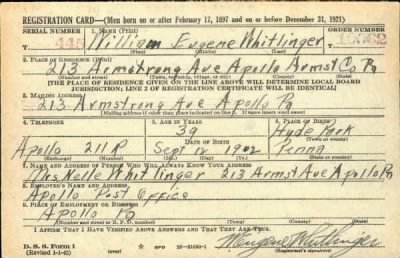 REGISTRATION CARD—(Men born on or after February 17, 1897 and on or before December 31, 1921)
SERIAL NUMBER 1. NAME (Print) ORDER NUMBER
445 William Eugene Whitlinger
(First) (Middle) (Last)
2. PLACE OF RESIDENCE (Print)
213 Armstrong Ave Apollo Armst Co Pa
(Number and street) (Town, township, village, or city) (County) (State)
[THE PLACE OF RESIDENCE GIVEN ON THE LINE ABOVE WILL DETERMINE LOCAL BOARD
JURISDICTION; LINE 2 OF REGISTRATION CERTIFICATE WILL BE IDENTICAL]
3. MAILING ADDRESS
213 Armstrong Ave Apollo Pa
[Mailing address if other than place indicated on line 2. If same insert word same]
4. TELEPHONE 5. AGE IN YEARS 6. PLACE OF BIRTH
39 Hyde Park
DATE OF BIRTH (Town or county)
Apollo 211 R Sept 12 1902 Penna
(Exchange) (Number) (Mo.) (Day) (Yr.) (State or country)
7. NAME AND ADDRESS OF PERSON WHO WILL ALWAYS KNOW YOUR ADDRESS
Mrs Nelle Whitlinger 213 Armst Ave Apollo Pa
8. EMPLOYER'S NAME AND ADDRESS
Apollo Post Office
9. PLACE OF EMPLOYMENT OR BUSINESS
Apollo Pa
(Number and street or R. F. D. number) (Town) (County) (State)
I AFFIRM THAT I HAVE VERIFIED ABOVE ANSWERS AND THAT THEY ARE TRUE.
D. S. S. Form 1
(Revised 1-1-42) (over) GPO 16—21630-1 W Eugene Whitlinger
(Registrant's signature)